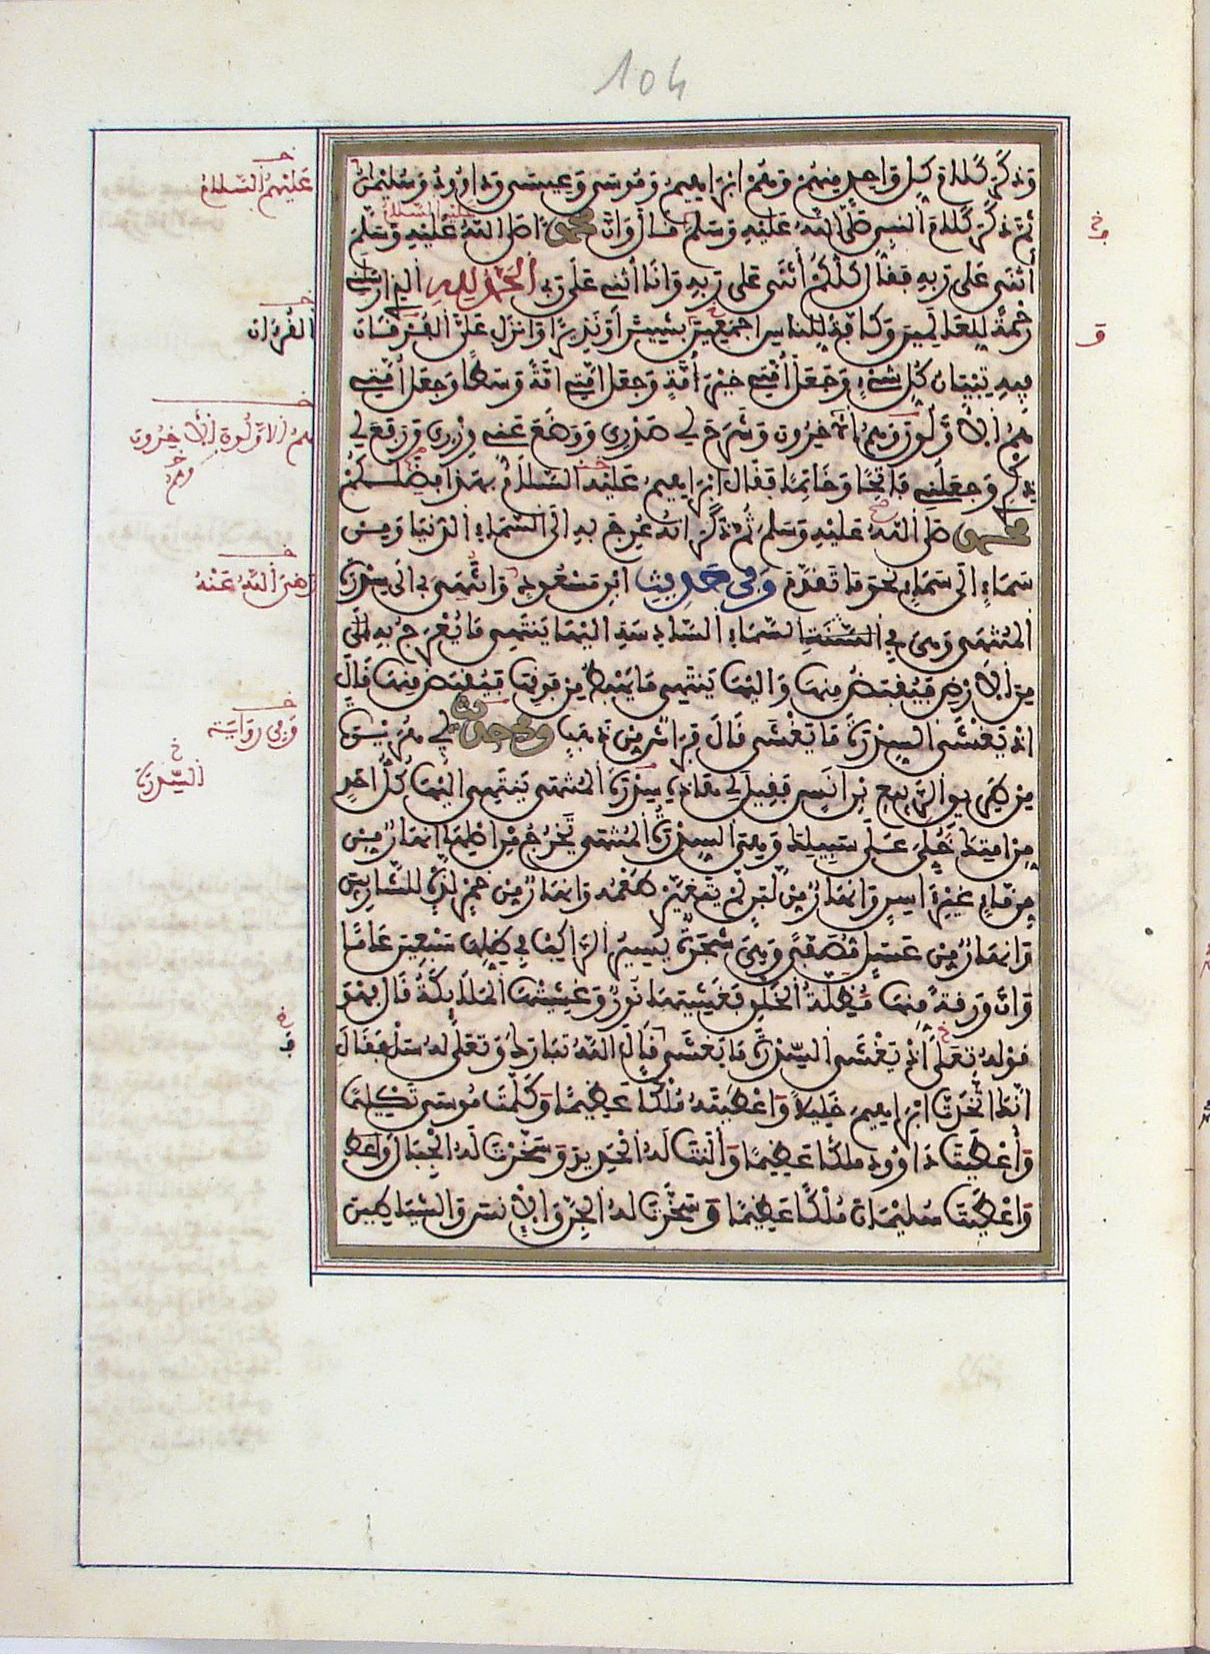 104
وَذَكَرَ كَلَامَ كُلِّ وَاحِدٍ مِنْهُمْ وَهُمْ اِبْرَاهِيمُ وَمُوسَى وَعِيسَى وَدَاوُودُ وَسُلَيْمَانُ
ثُمَّ ذَكَرَ كَلَامَ النَّبِيِّ صَلَّى اللَّهُ عَلَيْهِ وَسَلَّمَ فَقَالَ وَاِنَّ مُحَمَّدًا صَلَّى اللَّهُ عَلَيْهِ وَسَلَّمَ
أَثْنَى عَلَى رَبِّهِ فَقَالَ كُلُّكُمْ أَثْنَى عَلَى رَبِّهِ وَاَنَا اُثْنِي عَلَى رَبِّي اَلْحَمْدُ لِلهِ الَّذِي اَرْسَلَنِي
رَحْمَةً لِلْعَالَمِينَ وَكَافَّةً لِلنَّاسِ اَجْمَعِينَ بَشِيرًا وَنَذِيرًا وَاَنْزَلَ عَلَيَّ الْفُرْقَانَ
فِيهِ تِبْيَانُ كُلِّ شَيْءٍ وَجَعَلَ اُمَّتِي خَيْرَ اُمَّةٍ وَجَعَلَ اُمَّتِي اُمَّةً وَسَطًا وَجَعَلَ اُمَّتِي
هُمُ الْاَوَّلُونَ وَهُمُ الْآخِرُونَ وَشَرَحَ لِي صَدْرِي وَوَضَعَ عَنِّي وِزْرِي وَرَفَعَ لِي
ذِكْرِي وَجَعَلَنِي فَاتِحًا وَخَاتِمًا فَقَالَ اِبْرَاهِيمُ عَلَيْهِ السَّلَامُ بِهَذَا فَضَلَكُمْ
مُحَمَّدٌ صَلَّى اللَّهُ عَلَيْهِ وَسَلَّمَ ثُمَّ ذَكَرَ اَنَّهُ عُرِجَ بِهِ اِلَى السَّمَاءِ الدُّنْيَا وَمِنْ
سَمَاءٍ اِلَى سَمَاءٍ نَحْوَ مَا تَقَدَّمَ وَفِي حَدِيثِ ابْنِ مَسْعُودٍ وَانْتُهِيَ بِي اِلَى سِدْرَةِ
الْمُنْتَهَى وَهِيَ فِي السَّمَاءِ السَّادِسَةِ اِلَيْهَا يَنْتَهِي مَا يُعْرَجُ بِهِ
مِنَ الْاَرْضِ فَيُقْبَضُ مِنْهَا وَاِلَيْهَا يَنْتَهِي مَا يَهْبِطُ مِنْ فَوْقِهَا فَيُقْبَضُ مِنْهَا قَالَ
اِذْ يَغْشَى السِّدْرَةَ مَا يَغْشَى قَالَ فَرَاشٌ مِنْ ذَهَبٍ وَفِي حَدِيثِ اَبِي هُرَيْرَةَ
مِنْ طَرِيقِ الرَّبِيعِ بْنِ اَنَسٍ فَقِيلَ لِي هَذِهِ سِدْرَةُ الْمُنْتَهَى يَنْتَهِي اِلَيْهَا كُلُّ اَحَدٍ
مِنْ اُمَّتِكَ خَلَى عَلَى سَبِيلِكَ وَهِيَ السِّدْرَةُ الْمُنْتَهَى يَخْرُجُ مِنْ اَصْلِهَا اَنْهَارٌ مِنْ
مَاءٍ غَيْرِ آسِنٍ وَاَنْهَارٌ مِنْ لَبَنٍ لَمْ يَتَغَيَّرْ طَعْمُهُ وَاَنْهَارٌ مِنْ خَمْرٍ لَذَّةٍ لِلشَّارِبِينَ
وَاَنْهَارٌ مِنْ عَسَلٍ مُصَفًّى وَهِيَ شَجَرَةٌ يَسِيرُ الرَّاكِبُ فِي ظِلِّهَا سَبْعِينَ عَامًا
وَاِنَّ وَرَقَةً مِنْهَا مُظِلَّةُ الْخَلْقِ فَغَشِيَهَا نُورٌ وَغَشِيَتْهَا الْمَلَائِكَةُ قَالَ فَهُوَ
قَوْلُهُ تَعَلَى اِذْ يَغْشَى السِّدْرَةَ مَا يَغْشَى قَالَ اللَّهُ تَبَارَكَ وَتَعَلَى لَهُ سَلْ فَقَالَ
اِنَّكَ اتَّخَذْتَ اِبْرَاهِيمَ خَلِيلًا وَاَعْطَيْتَهُ مُلْكًا عَظِيمًا وَكَلَّمْتَ مُوسَى تَكْلِيمًا
وَأَعْطَيْتَ دَاوُودَ مُلْكًا عَظِيمًا وَأَلَنْتَ لَهُ الْحَدِيدَ وَسَخَّرْتَ لَهُ الْجِبَالَ
وَاَعْطَيْتَ سُلَيْمَانَ مُلْكًا عَظِيمًا وَسَخَّرْتَ لَهُ الْجِنَّ وَالْاِنْسَ وَالشَّيَاطِينَ
عَلَيْهِمُ السَّلَامُ
الْقُرْءَانَ
هُمُ الْاَوَّلُونَ الْآخِرُونَ
وَهُمُ
رَضِيَ اللَّهُ عَنْهُ
وَفِي رِوَايَةٍ
السِّدْرَةُ